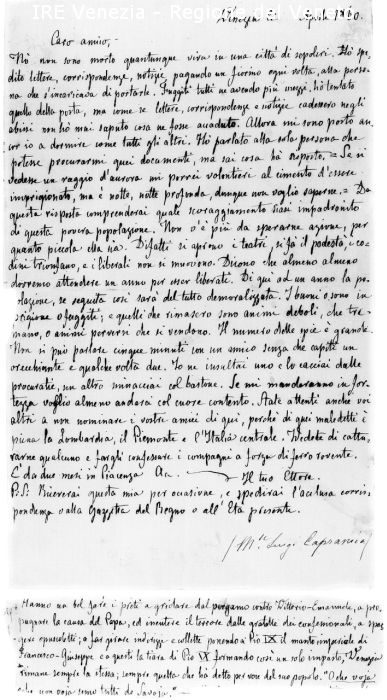 IRE Venezia - Regione del Veneto
Venezia 2 Aprile 1860.
Caro amico,
No non sono morto quantunque viva in una città di sepolcri. Ho spe-
dito lettere, corrispondenze, notizie pagando un fiorino ogni volta, alla perso-
na che s'incaricava di portarle. Fuggiti tutti ne avendo più mezzi, ho tentato
quello della posta, ma come se lettere, corrispondenze e notizie cadessero negli
abissi non ho mai saputo cosa ne fosse accaduto. Allora mi sono posto an-
cor io a dormire come tutti gli altri. Ho parlato alla sola persona che
potesse procurarmi quei documenti, ma sai cosa ha risposto, = Se si
vedesse un raggio d'aurora mi porrei volontieri al cimento d'essere
imprigionato, ma è notte, notte profonda, dunque non voglio saperne. = Da
questa risposta comprenderai quale scoraggiamento siasi impadronito
di questa povera popolazione. Non v'è più da sperarne azione, per
quanto piccola ella sia. Difatti si aprono i teatri, si fà il podestà, i co-
dini trionfano, e i liberali non si muovono. Dicono che almeno almeno
dovremo attendere un anno per esser liberati. Di qui ad un anno la po-
polazione, se seguita così sarà del tutto demoralizzata. I buoni o sono in
prigione o fuggiti; e quelli che rimasero sono animi deboli, che tre-
mano, o animi perversi che si vendono. Il numero delle spie è grande.
Non si può parlare cinque minuti con un amico senza che capiti un
orecchiante e qualche volta due. Io ne insultai uno e lo cacciai dalle
procuratie, un altro minacciai col bastone. Se mi manderanno in for-
tezza voglio almeno andarvi col cuore contento. State attenti anche voi
altri a non nominare i vostri amici di qui, perchè di que' maledetti è
piena la Lombardia, il Piemonte e l'Italia centrale. Vedete di cattu-
rarne qualcuno e fargli confessare i compagni a forza di ferro rovente.
C'è da due mesi in Piacenza Ac. Il tuo Ettore.
P.S. Riceverai questa mia per occasione, e spedirai l'acclusa corris-
pondenza o alla Gazzetta del Regno o all' Età presente.
(M.se Luigi Capranica)
Hanno un bel fare i preti a gridare dal pergamo contro Vittorio-Emanuele, a pro-
pugnare la causa del Papa, ed incutere il terrore dalle gratelle dei confessionali, a spar-
gere opuscoletti; a far girare indirizzi e collette ponendo a Pio IX il manto imperiale di
Francesco-Giuseppe e a questi la tiara di Pio IX formando così un solo impasto, Venezia
rimane sempre la stessa; sempre quella che ha detto per voce del suo popolo. "O che voja
che non voja semo tutti de Savoja."